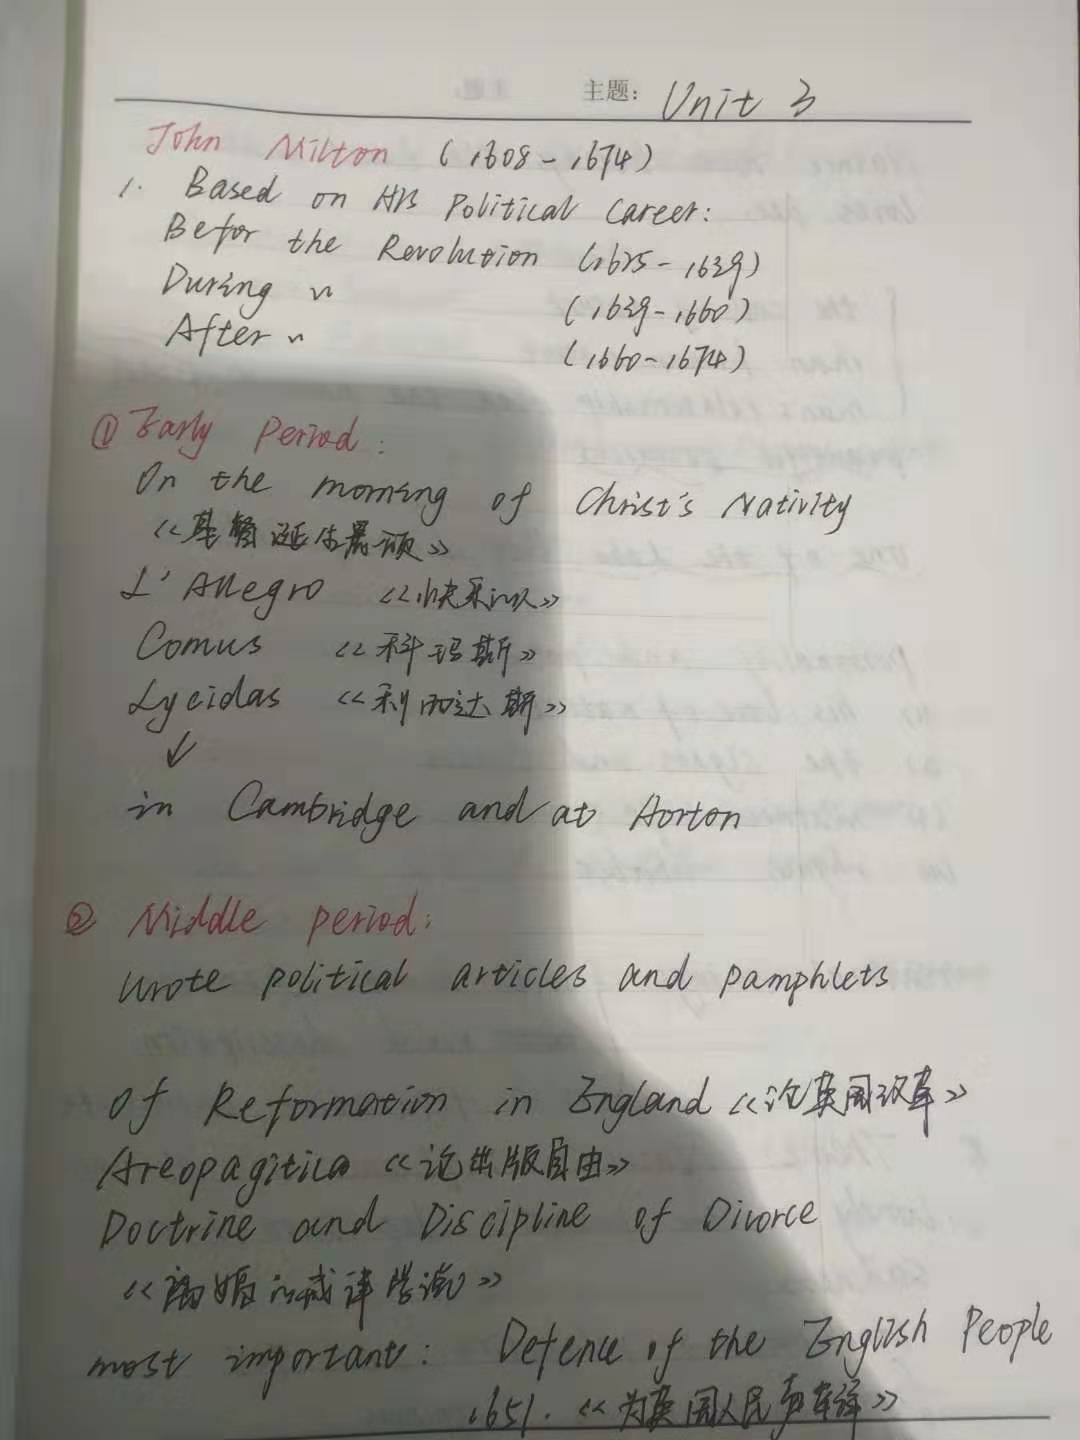 主题: Unit 3
John Milton (1608-1674)
1. Based on His Political Career:
Befor the Revolution (1625-1639)
During 〃 (1639-1660)
After 〃 (1660-1674)
① Early Period:
On the morning of Christ's Nativity
《基督诞生晨颂》
L'Allegro 《快乐的人》
Comus 《科玛斯》
Lycidas 《利西达斯》
↓
in Cambridge and at Horton
② Middle period:
wrote political articles and pamphlets
Of Reformation in England 《论英国改革》
Areopagitica 《论出版自由》
Doctrine and Discipline of Divorce
《离婚的戒律学说》
most important: Defence of the English People
1651. 《为英国人民声辩》